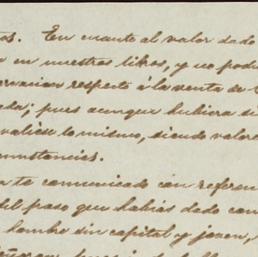 os. En cuanto al valor dado
a en nuestros libros, y no pod
respecto á la venta de
eda; pues aunque hubiera si
valiese lo mismo, siendo valor
cunstancias.
a te comunicado con referen
del paso que habías dado con
hombre sin capital y joven,